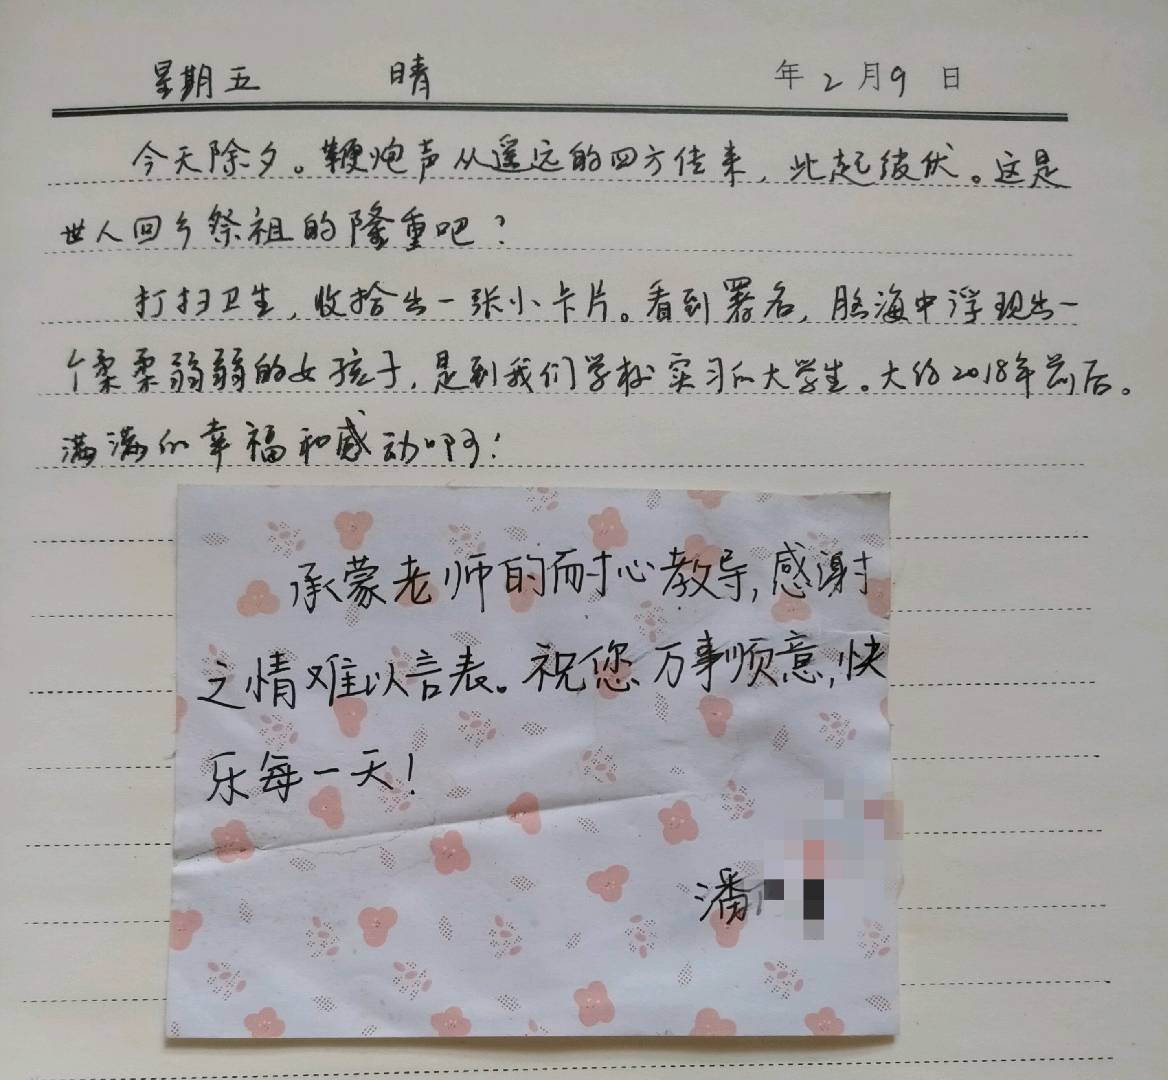 星期五 晴 年2月9日
今天除夕。鞭炮声从遥远的四方传来，此起彼伏。这是
世人回乡祭祖的隆重吧？
打扫卫生，收拾出一张小卡片。看到署名，脑海中浮现出一
个柔柔弱弱的女孩子，是到我们学校实习的大学生。大约2018年前后。
满满的幸福和感动啊！
承蒙老师的耐心教导，感谢
之情难以言表。祝您万事顺意，快
乐每一天！
潘